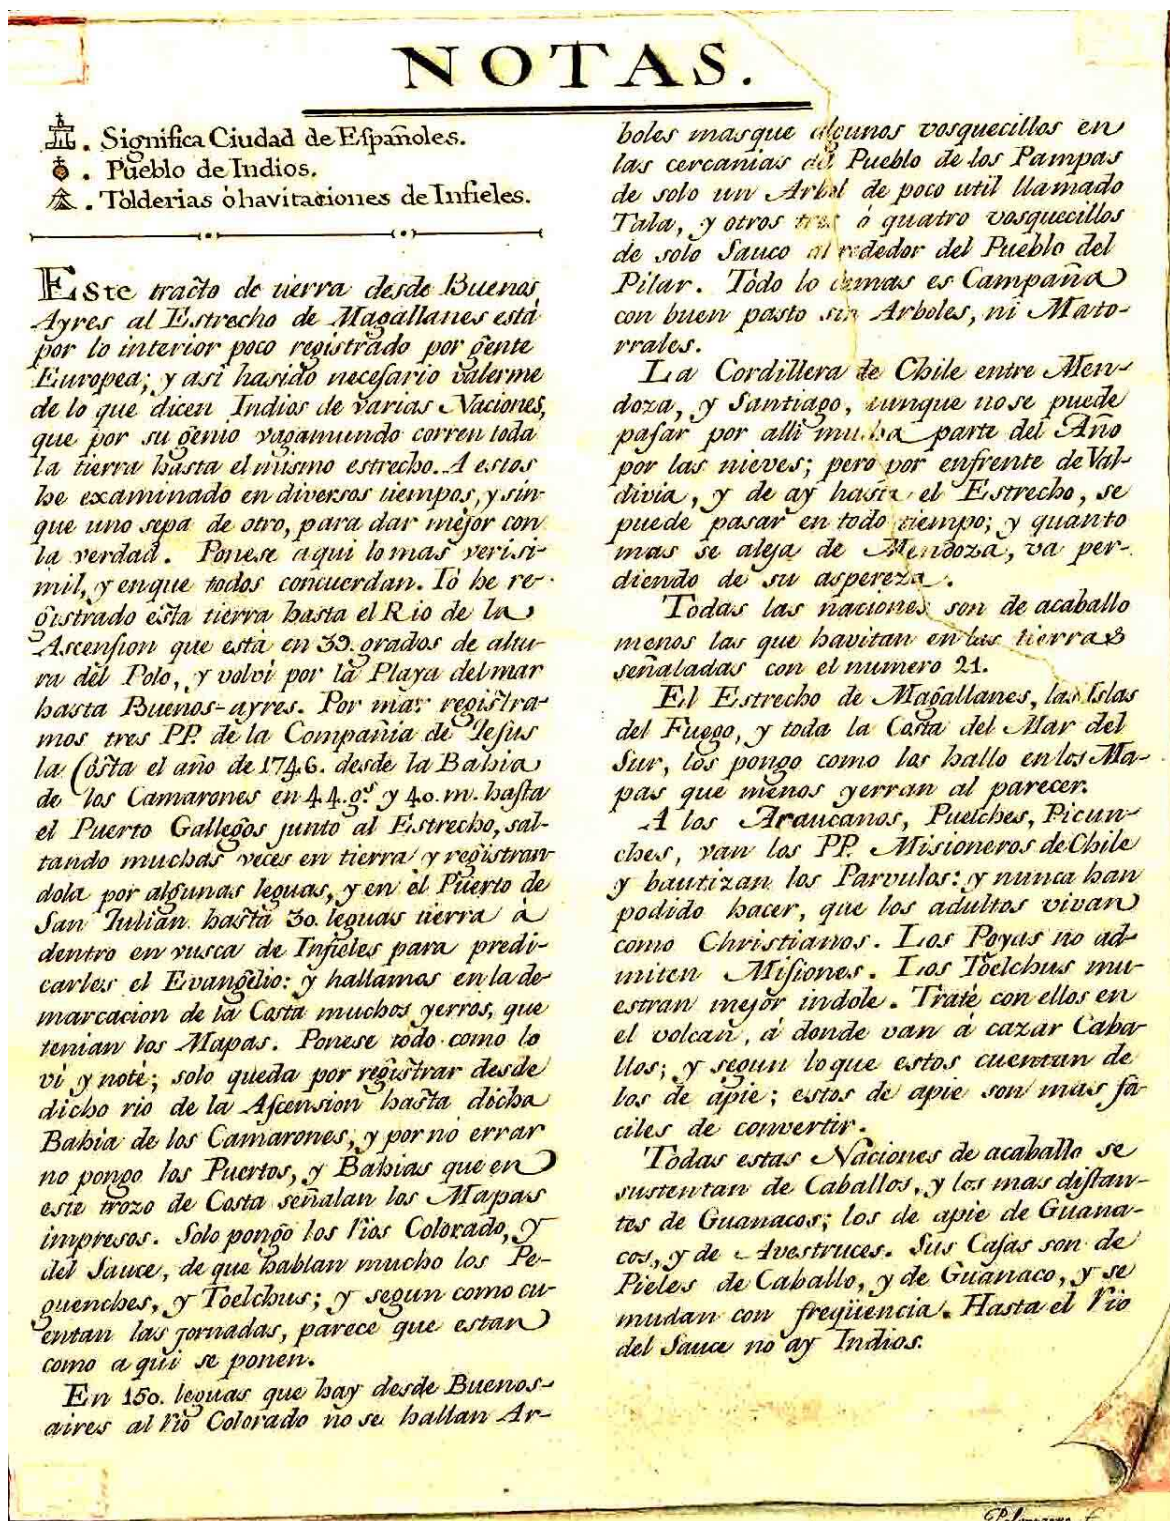 NOTAS.
. Significa Ciudad de Españoles.
. Pueblo de Indios.
. Tolderias òhavitaciones de Infieles.
Este tracto de tierra desde Buenos
Ayres al Estrecho de Magallanes está
por lo interior poco registrado por gente
Europea; y asi hasido necesario valerme
de lo que dicen Indios de varias Naciones,
que por su genio vagamundo corren toda
la tierra hasta el mismo estrecho. A estos
he examinado en diversos tiempos, y sin
que uno sepa de otro, para dar mejor con
la verdad. Ponese aqui lo mas verisi-
mil, y enque todos concuerdan. Io he re-
gistrado esta tierra hasta el Rio de la
Ascension que está en 39. grados de altu-
ra del Polo, y volvi por la Playa del mar
hasta Buenos-ayres. Por mar registra-
mos tres PP. de la Compañia de Jesus
la Costa el año de 1746. desde la Bahia
de los Camarones en 44.g.s y 40. m. hasta
el Puerto Gallegos junto al Estrecho, sal-
tando muchas veces en tierra y registran-
dola por algunas leguas, y en el Puerto de
San Julian hasta 30. leguas tierra à
dentro en vusca de Infieles para predi-
carles el Evangelio: y hallamos en la de-
marcacion de la Costa muchos yerros, que
tenian los Mapas. Ponese todo como lo
vi y noté; solo queda por registrar desde
dicho rio de la Ascension hasta dicha
Bahia de los Camarones, y por no errar
no pongo los Puertos, y Bahias que en
este trozo de Costa señalan los Mapas
impresos. Solo pongo los rios Colorado, y
del Sauce, de que hablan mucho los Pe-
guenches, y Toelchus; y segun como cu-
entan las jornadas, parece que estan
como aqui se ponen.
En 150. leguas que hay desde Buenos-
aires al rio Colorado no se hallan Ar-
boles masque algunos vosquecillos en
las cercanias del Pueblo de los Pampas
de solo un Arbol de poco util llamado
Tala, y otros tres ò quatro vosquecillos
de solo Sauco al rededor del Pueblo del
Pilar. Todo lo demas es Campaña
con buen pasto sin Arboles, ni Mato-
rrales.
La Cordillera de Chile entre Men-
doza, y Santiago, aunque nose puede
pasar por alli mucha parte del Año
por las nieves; pero por enfrente de Val-
divia, y de ay hasta el Estrecho, se
puede pasar en todo tiempo; y quanto
mas se aleja de Mendoza, va per-
diendo de su aspereza.
Todas las naciones son de acaballo
menos las que havitan en las tierras
señaladas con el numero 21.
El Estrecho de Magallanes, las Islas
del Fuego, y toda la Costa del Mar del
Sur, los pongo como los hallo en los Ma-
pas que menos yerran al parecer.
A los Araucanos, Puelches, Picun-
ches, van los PP. Misioneros de Chile
y bautizan los Parvulos: y nunca han
podido hacer, que los adultos vivan
como Christianos. Los Poyas no ad-
miten Misiones. Los Toelchus mu-
estran mejor indole. Traté con ellos en
el volcan, à donde van à cazar Caba-
llos; y segun lo que estos cuentan de
los de apie; estos de apie son mas fa-
ciles de convertir.
Todas estas Naciones de acaballo se
sustentan de Caballos, y los mas distan-
tes de Guanacos; los de apie de Guana-
cos, y de Avestruces. Sus Casas son de
Pieles de Caballo, y de Guanaco, y se
mudan con freqüencia. Hasta el rio
del Sauce no ay Indios.